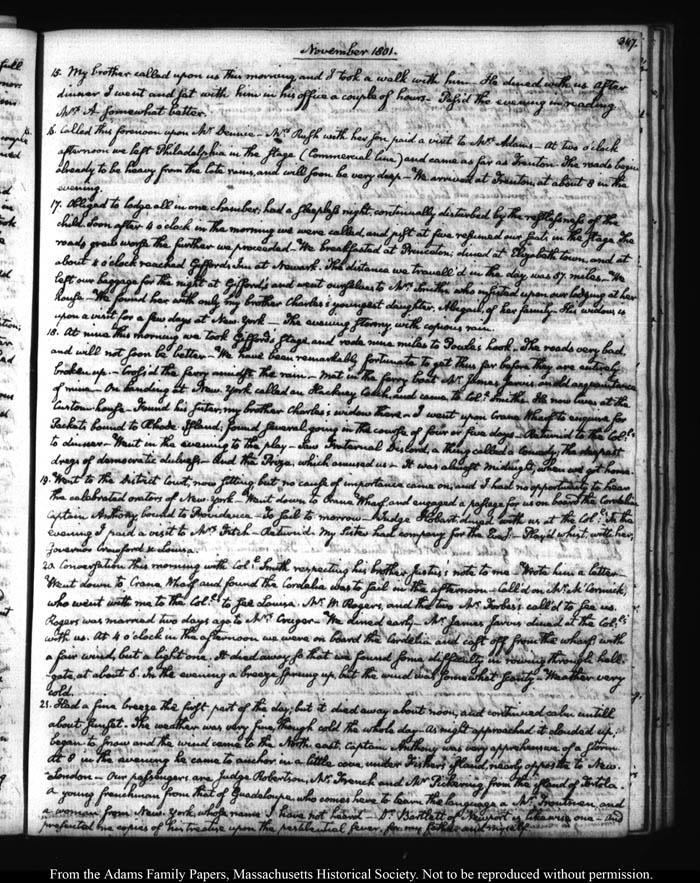 247.
November 1801.
15. My brother called upon us this morning, and I took a walk with him – He dined with us. After
dinner I went and sat with him in his office a couple of hours – Pass'd the evening in reading
Mrs. A. somewhat better.
16. Called this forenoon upon Mr. Dennie – Mrs. Rush with her son paid a visit to Mrs. Adams – At two o'clock
afternoon we left Philadelphia in the Stage (Commercial line) and came as far as Trenton. The roads begin
already to be heavy from the late rains, and will soon be very deep – We arrived at Trenton, at about 8 in the
evening.
17. Obliged to lodge all in one chamber; had a sleepless night, continually disturbed by the restlessness of the
child. Soon after 4 o'clock in the morning we were called, and just at five resumed our seats in the Stage. The
roads grew worse the further we proceeded – We breakfasted at Princeton; dined at Elizabeth town, and at
about 4 o'clock reached Gifford's Inn at Newark. The distance we travell'd in the day was 57 miles – We
left our baggage for the night at Gifford's and went ourselves to Mrs. Smith's who insisted upon our lodging at her
house – We found her with only my brother Charles's youngest daughter, Abigail, of her family – His widow is
upon a visit for a few days at New York – The evening stormy, with copious rain.
18. At nine this morning we took Gifford's Stage, and rode nine miles to Powles hook. The roads very bad,
and will not soon be better – We have been remarkably fortunate to get thus far before they are entirely
broken up – Cross'd the ferry amidst the rain – Met in the ferry boat Mr. James Jarvis, an old acquaintance
of mine – On landing at New York called an Hackney Coach, and came to Col. Smith's. He now lives at the
Custom-house – Found his sister, my brother Charles's widow there – I went upon Crane Wharf to enquire for
Packets bound to Rhode Island; found several going in the course of four or five days – Return'd to the Col's.
to dinner – Went in the evening to the play – Saw Fraternal Discord, a thing called a Comedy; the deepest
dregs of democratic dulness – And the Prize, which amused us – It was almost midnight, when we got home.
19. Went to the District Court, now sitting, but no cause of importance came on; and I had no opportunity to hear
the celebrated orators of New-York – Went down to Crane Wharf, and engaged a passage for us on board the Cordelia
Captain Anthony, bound to Providence – To sail to morrow – Judge Hobart dined with us at the Col's. In the
evening I paid a visit to Mrs. Fitch – Return'd. My Sister had company for the Eveg. – Play'd whist, with her,
Governor Crawford & Louisa.
20. Conversation this morning with Col. Smith respecting his brother Justus's note to me. Wrote him a letter –
Went down to Crane Wharf and found the Cordelia was to sail in the afternoon – Call'd on Mr. McCormick,
who went with me to the Col's. to see Louisa. Mr. W. Rogers, and the two Mr. Forbes's call'd to see us.
Rogers was married two days ago to Mrs. Cruger – We dined early – Mr. James Jarvis dined at the Col's.
with us. At 4 o'clock in the afternoon we were on board the Cordelia and cast off from the wharf with
a fair wind, but a light one. It died away so that we found some difficulty in rowing through hell-
gate, at about 6. In the evening a breeze sprung up, but the wind was somewhat scanty – Weather very
cold.
21. Had a fine breeze the first part of the day; but it died away about noon, and continued calm untill
about sunset. The weather was very fine though cold the whole day – As night approached it clouded up,
began to snow and the wind came to the North east. Captain Anthony was very apprehensive of a storm
At 8 in the evening he came to anchor, in a little cove under Fishers island, nearly opposite to New-
London – Our passengers are Judge Robertson, Mr. French and Mr. Pickering, from the island of Tortola.
A young frenchman from that of Guadeloupe, who comes here to learn the language a Mr. Troutman, and
a woman from New York, whose name I have not heard – Dr. Bartlett of Newport is likewise one – and
presented me copies of his treatise upon the pestilential fever, for my father and myself.
From the Adams Family Papers, Massachusetts Historical Society. Not to be reproduced without permission.